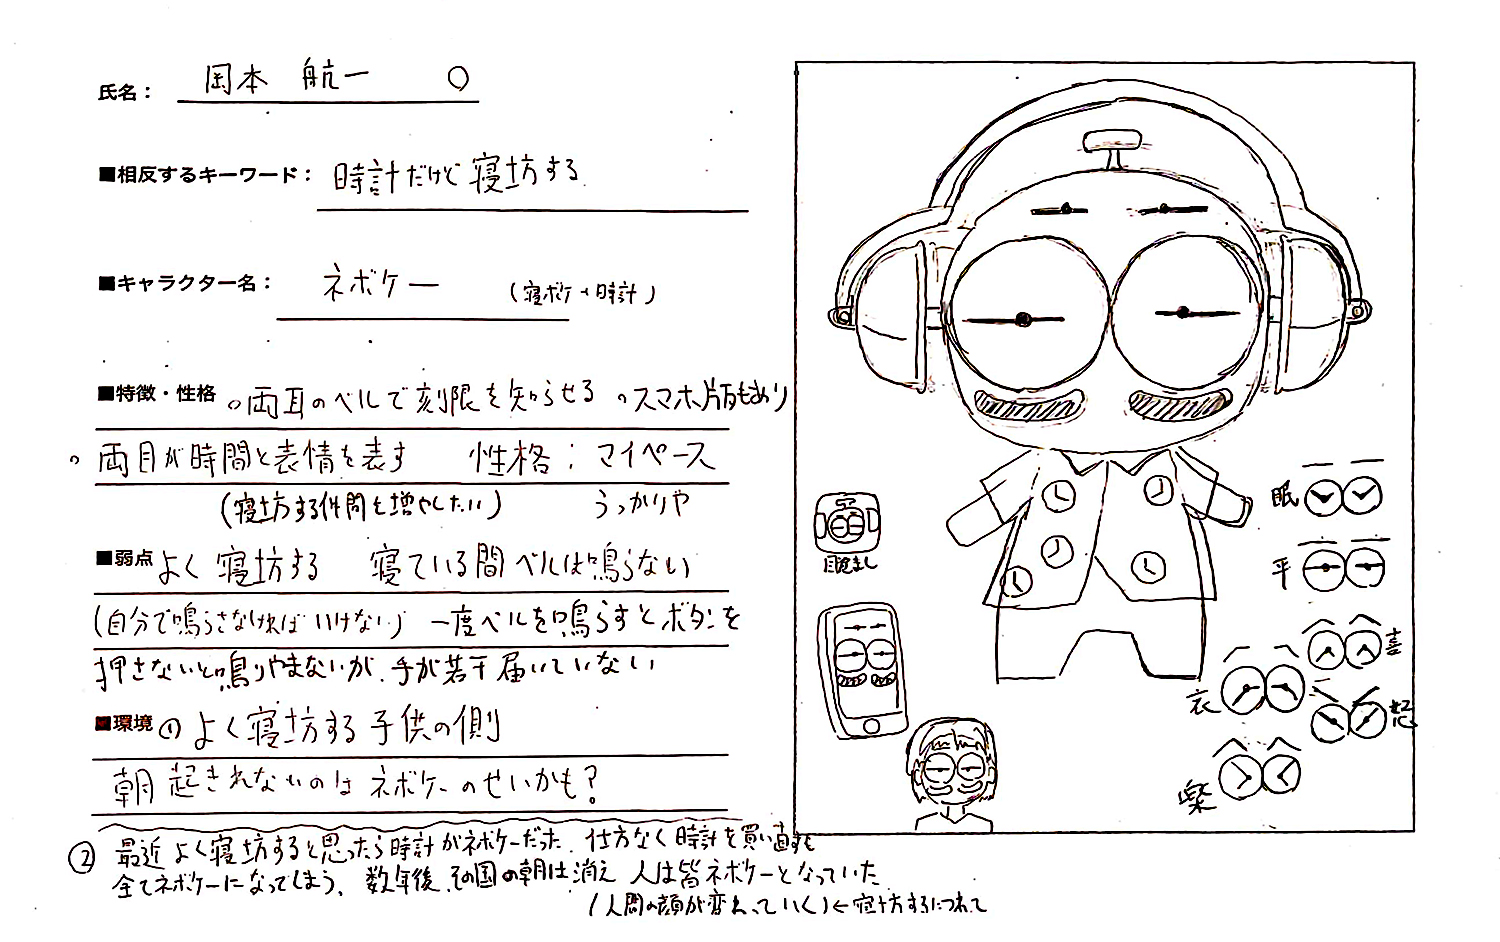 氏名： 岡本 航一 ○
■相反するキーワード： 時計だけど寝坊する
■キャラクター名： ネボケー (寝ボケ+時計)
■特徴・性格 。両耳のベルで刻限を知らせる 。スマホ版もあり
。両目が時間と表情を表す 性格：マイペース
(寝坊する仲間を増やしたい) うっかりや
■弱点 よく寝坊する 寝ている間ベルは鳴らない
(自分で鳴らさなければいけない) 一度ベルを鳴らすとボタンを
押さないと鳴りやまないが、手が若干届いていない
■環境 ① よく寝坊する子供の側
朝起きれないのはネボケーのせいかも?
② 最近よく寝坊すると思ったら時計がネボケーだった、仕方なく時計を買い直すも
全てネボケーになってしまう、数年後、その国の朝は消え 人は皆ネボケーとなっていた
(人間の顔が変わっていく)←寝坊するにつれて
目覚まし
眠
平
喜
哀
怒
楽